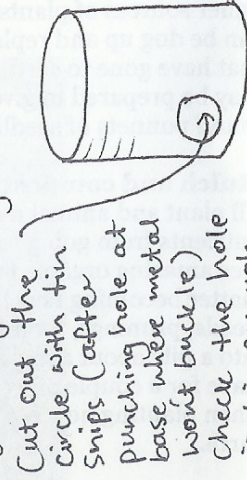 Cut out the
circle with tin
snips (after
punching a hole at
base where metal
won't buckle)
check the hole